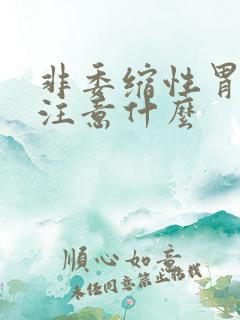 非委缩性胃
注意什麼
順心如意
未经同意禁止转载